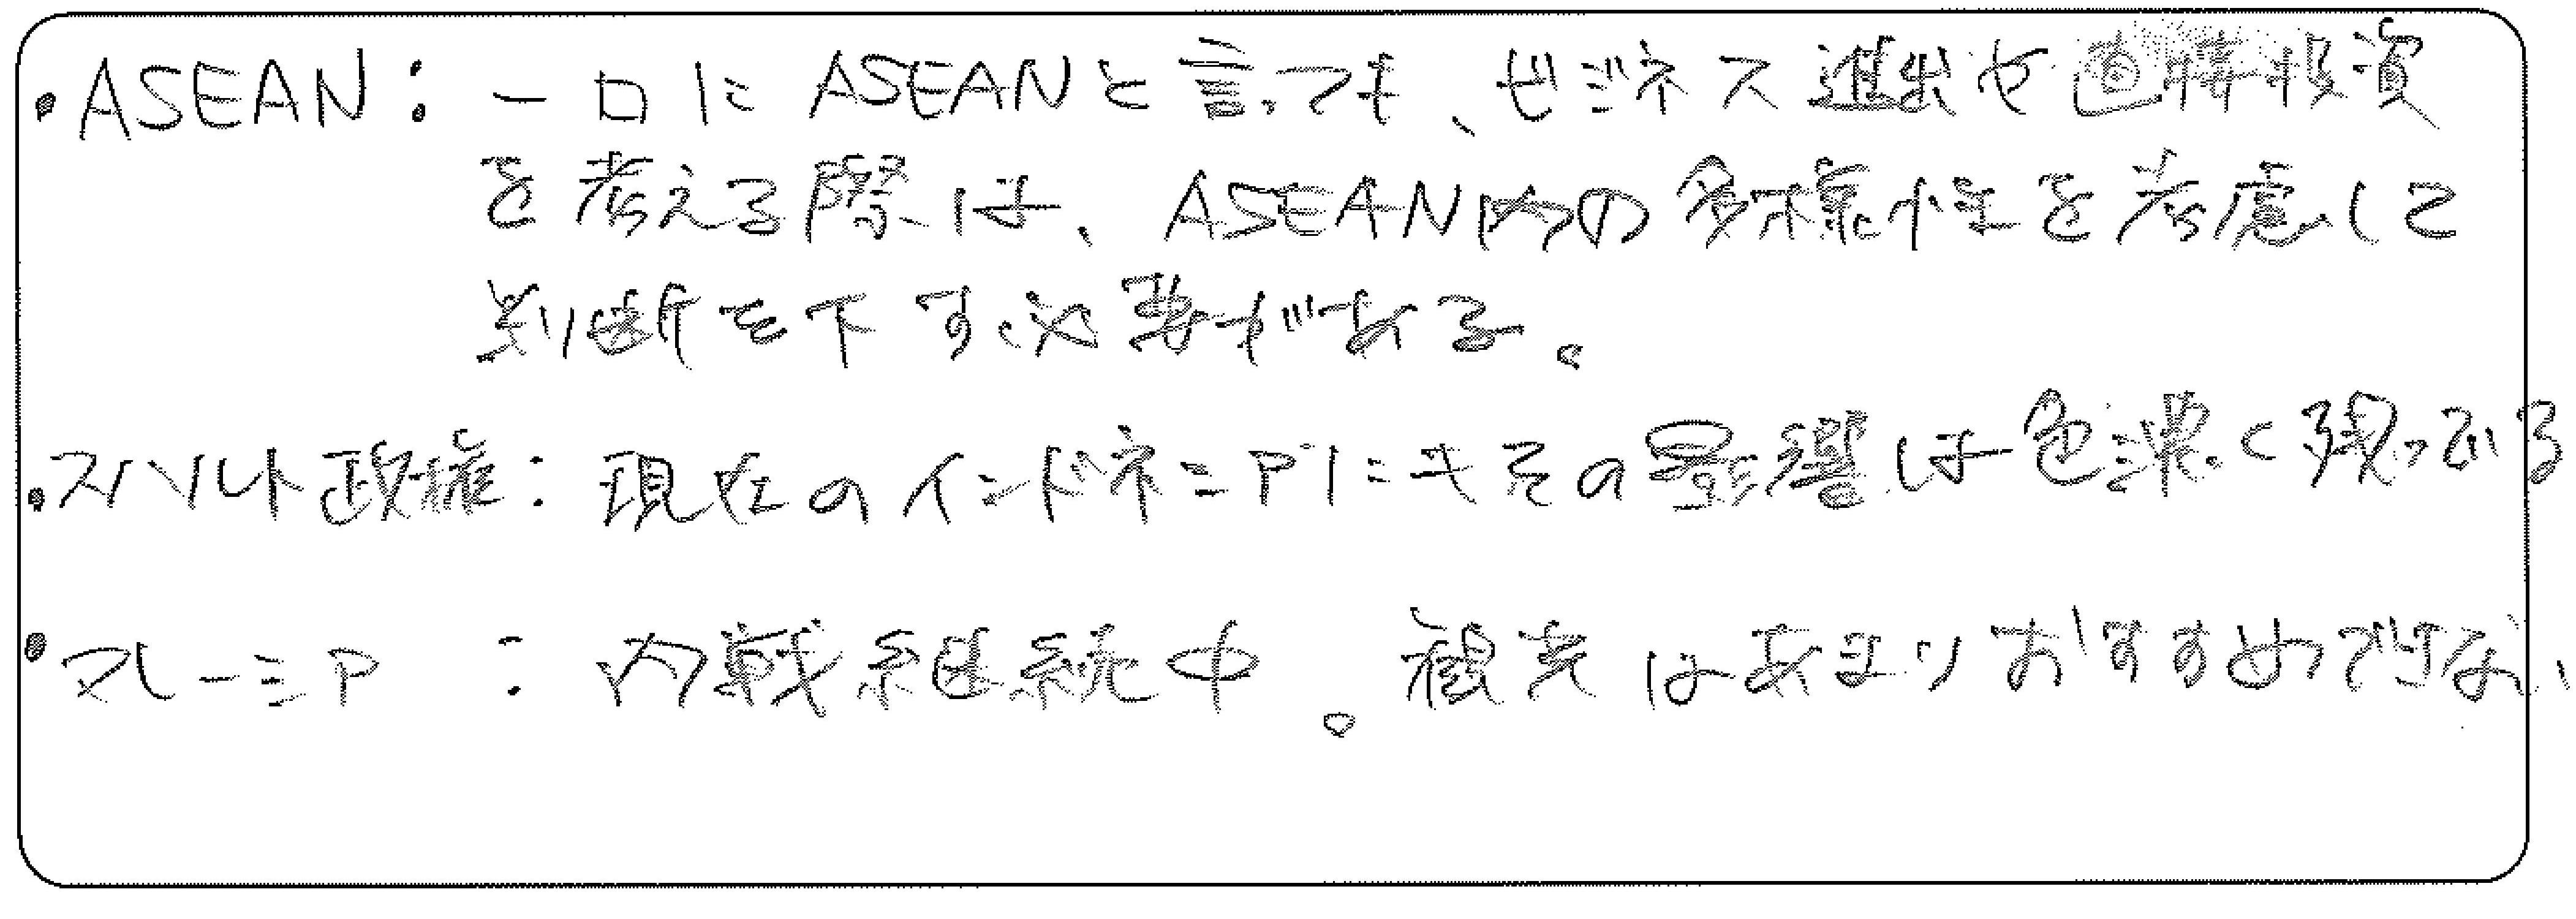 ・ASEAN：一口にASEANと言っても、ビジネス進出や直接投資
を考える際は、ASEAN内の多様性を考慮して
判断を下す必要がある。
・スハルト政権：現在のインドネシアにもその影響は色濃く残っている
・マレーシア：内戦継続中。観光はあまりおすすめではない